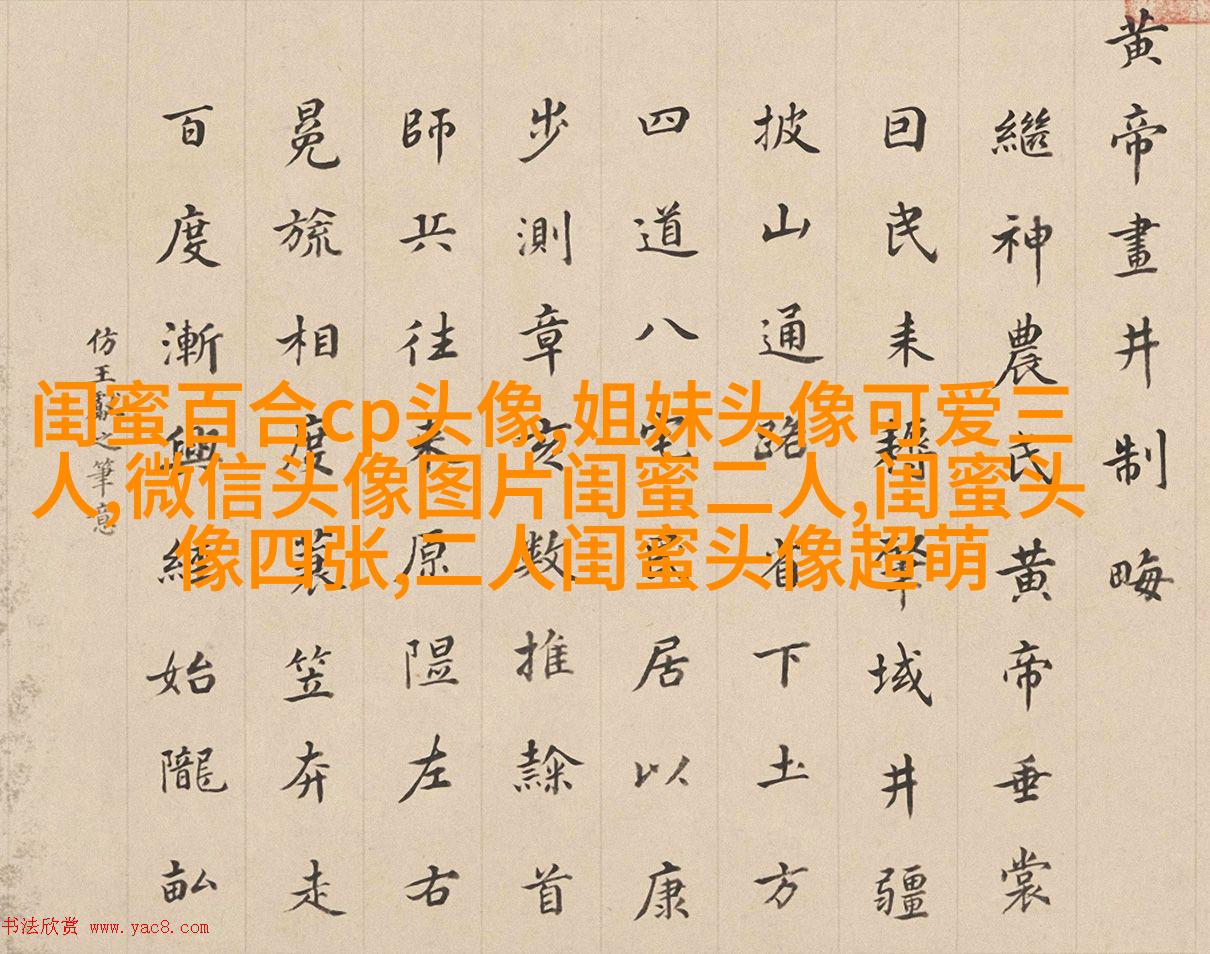 黄帝畫井制畮
繼神農氏黄帝垂裳
囙民耒耨肇域井疆
披山通路首下土方
四道八宅居以康
步測章亥數推隷首
師兵往来原隰左右
冕旒相度蓑笠奔走
百度漸興繆始隴畝
仿王之筆意
闺蜜百合cp头像,姐妹头像可爱三
人,微信头像图片闺蜜二人,闺蜜头
像四张,二人闺蜜头像超萌
书法欣赏 www.yac8.com